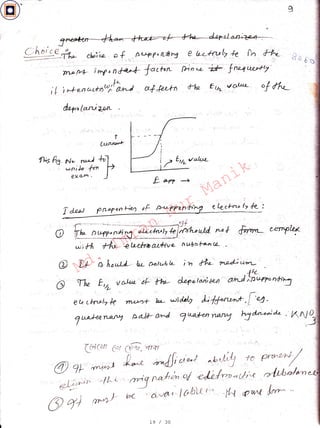 9
greater than that of the depolarizer
Choice The choice of supporting electrolyte is the
most important factor since it frequently
it interacts with and affects the E½ value of the
depolarizer.
↑
current
→ E½ value
This fig No need to
write for
exam.
E app →
Ideal properties of supporting electrolyte:
① The supporting electrolyte should not form complex
with the electroactive substance.
② It should be soluble in the medium.
③ The E½ value of the depolarizer and the supporting
electrolyte must be widely different. eg.
quaternary salt and quaternary hydroxide. KNO3
④ It must have sufficient ability to prevent/
eliminate the migration of electroactive substance
⑤ It must be available in the pure form.
Manik
19 / 30